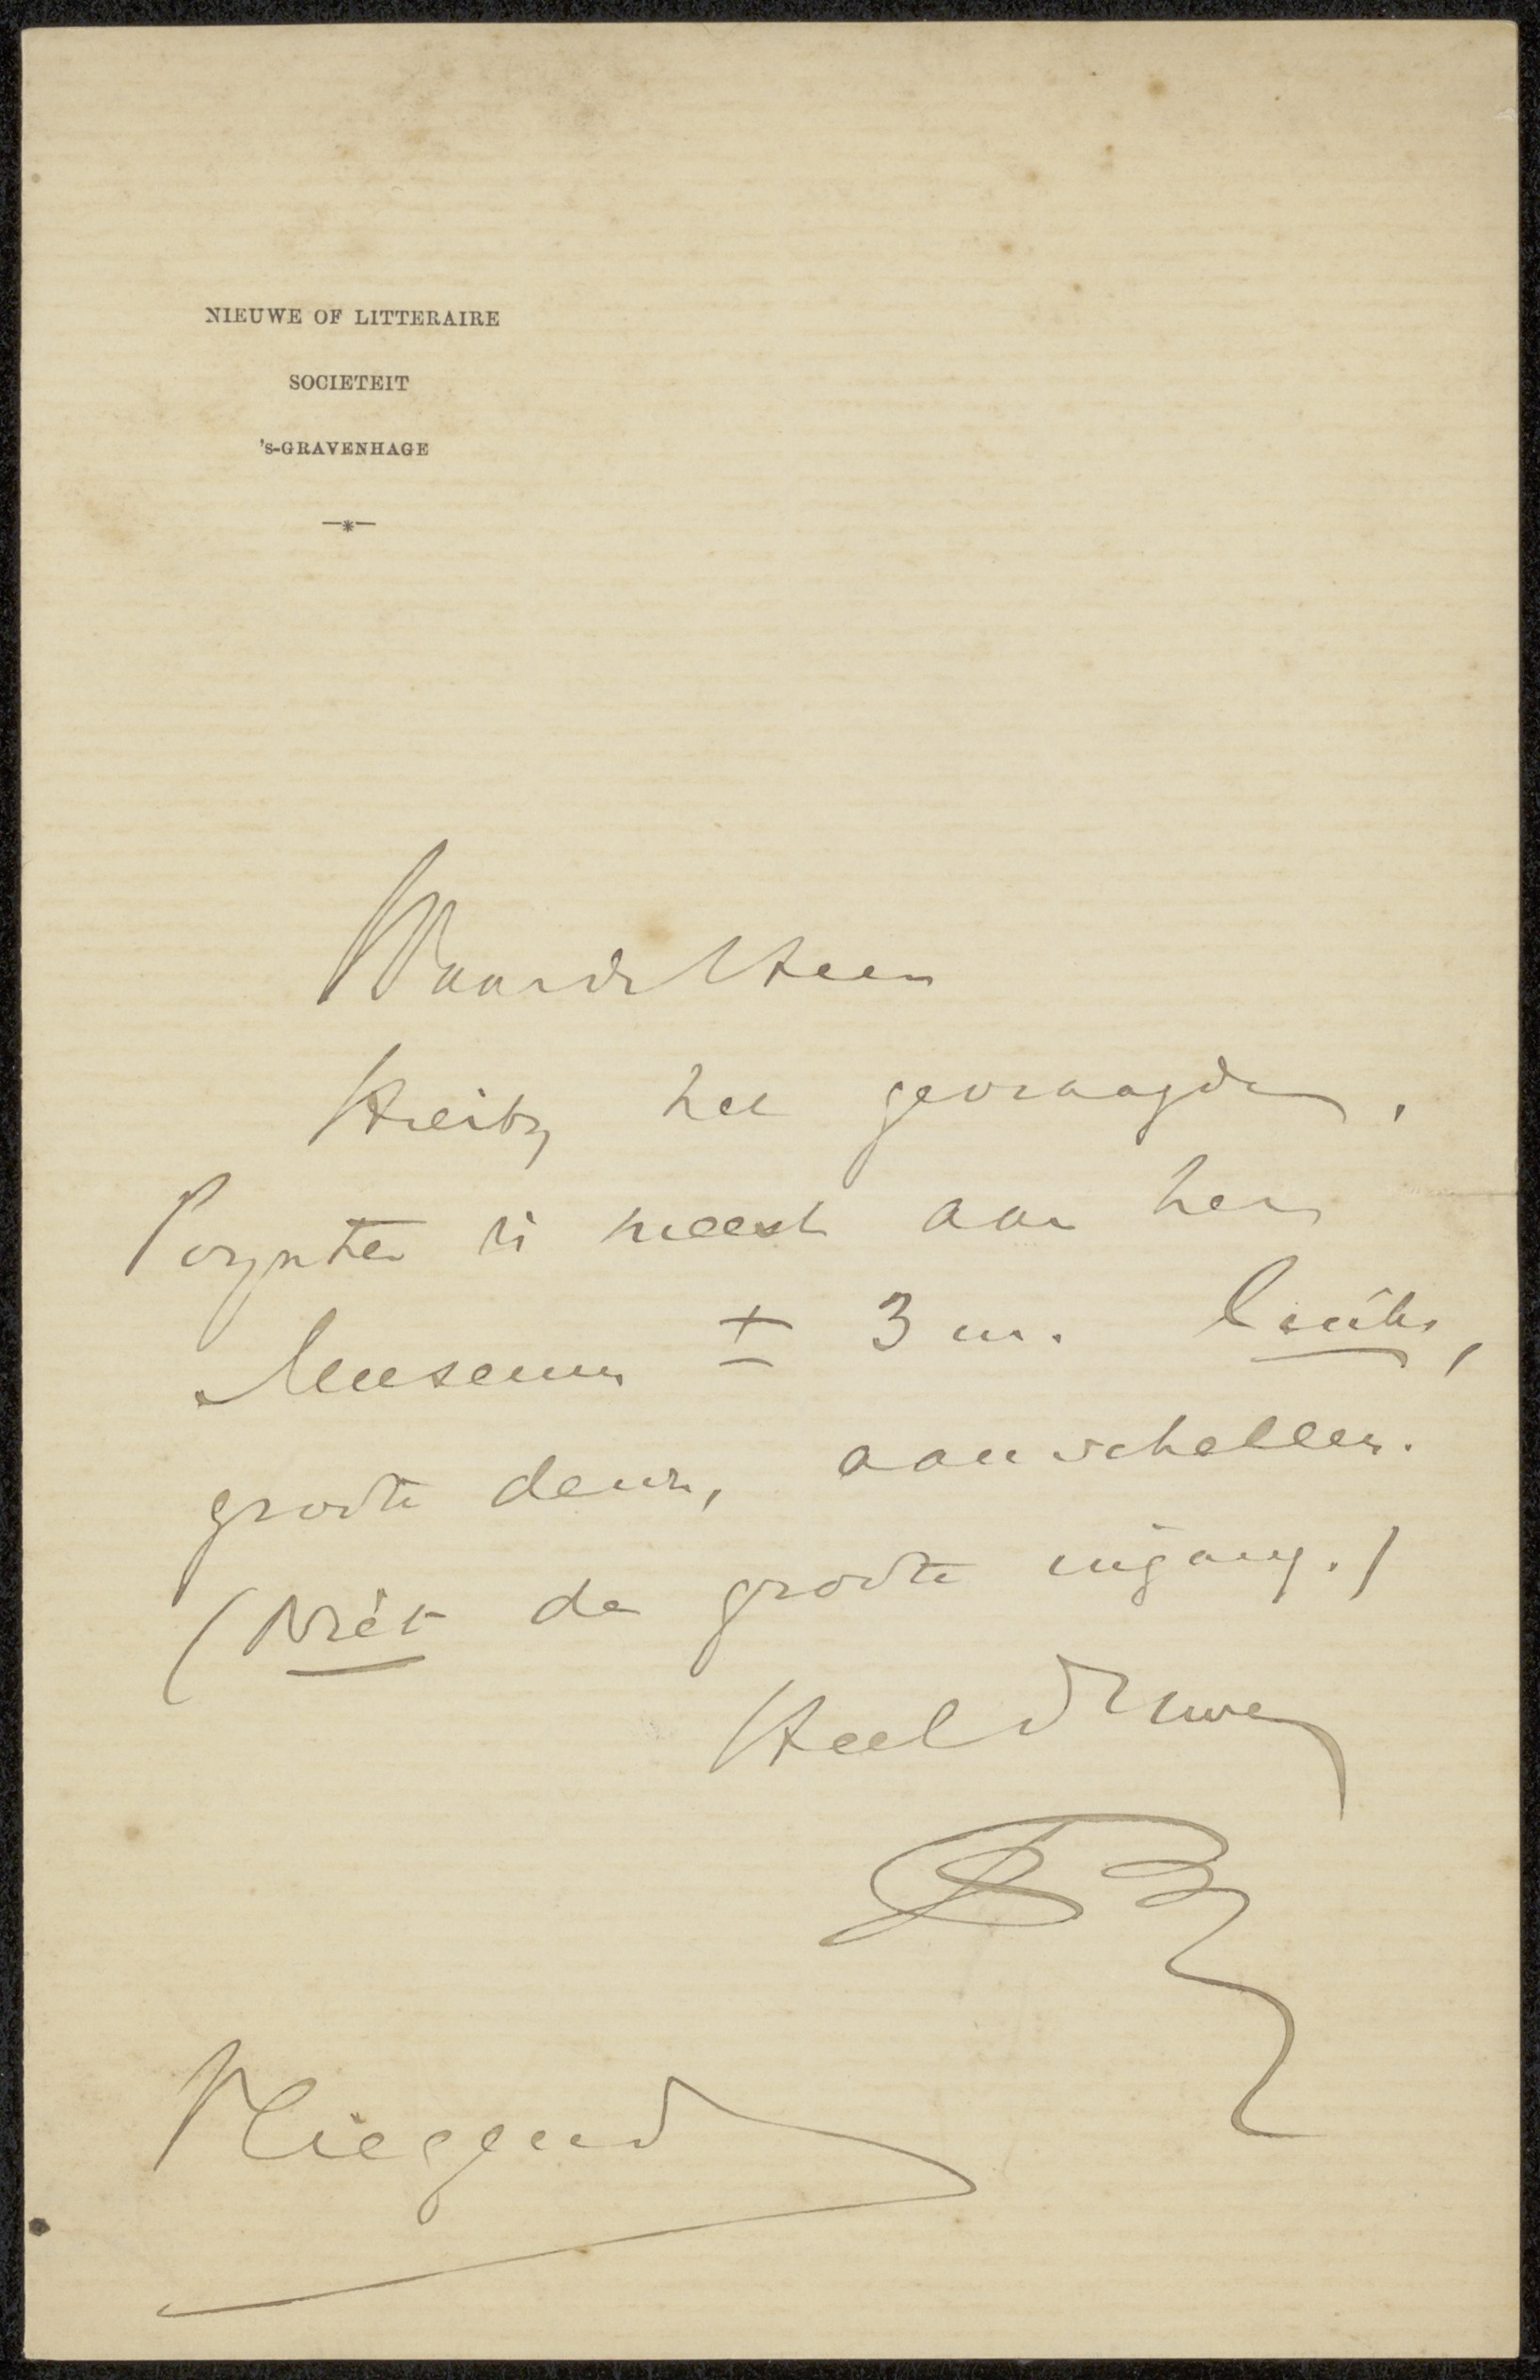 NIEUWE OF LITTERAIRE
SOCIETEIT
's-GRAVENHAGE
Waarde Heer
Hierby het gevraagde.
Poynter is meest aan het
Museum ± 3 u.
groote deur, aanschellen.
(Niét de groote ingang.)
Heel d Uwe
Vliegend